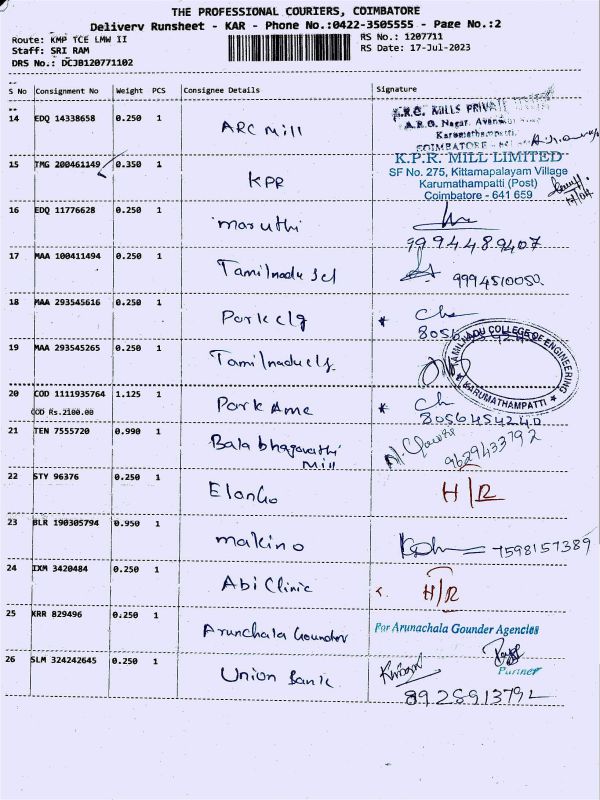 THE PROFESSIONAL COURIERS, COIMBATORE
Delivery Runsheet - KAR - Phone No.:0422-3505555 - Page No.:2
Route: KMP TCE LMW II
RS No.: 1207711
Staff: SRI RAM
RS Date: 17-Jul-2023
DRS No.: DCJB120771102
S No Consignment No Weight PCS Consignee Details Signature
14 EDQ 14338658 0.250 1 ARC Mill
MILLS PRIVATE
Nagar,
Karumathampatti.
COIMBATORE
15 TMG 200461149 0.350 1 KPR
K.P.R. MILL LIMITED
SF No. 275, Kittamapalayam Village
Karumathampatti (Post)
Coimbatore - 641 659
16 EDQ 11776628 0.250 1 maruthi
9994489407
17 MAA 100411494 0.250 1 Tamilnadu
9994510050
18 MAA 293545616 0.250 1 Park clg
* Ch
19 MAA 293545265 0.250 1 Tamilnadu clg.
TAMILNADU COLLEGE OF ENGINEERING
★ KARUMATHAMPATTI ★
20 COD 1111935764 1.125 1 Park Ame * Ch
COD Rs.2100.00
8056454240
21 TEN 7555720 0.990 1 Bala bhagavathi
Mill
9629433792
22 STY 96376 0.250 1 Elanko H/R
23 BLR 190305794 0.950 1 makino
7598157389
24 IXM 3420484 0.250 1 Abi Clinic H/R
25 KRR 829496 0.250 1 Arunchala Gounder
For Arunachala Gounder Agencies
Partner
26 SLM 324242645 0.250 1 Union Bank
8928913792